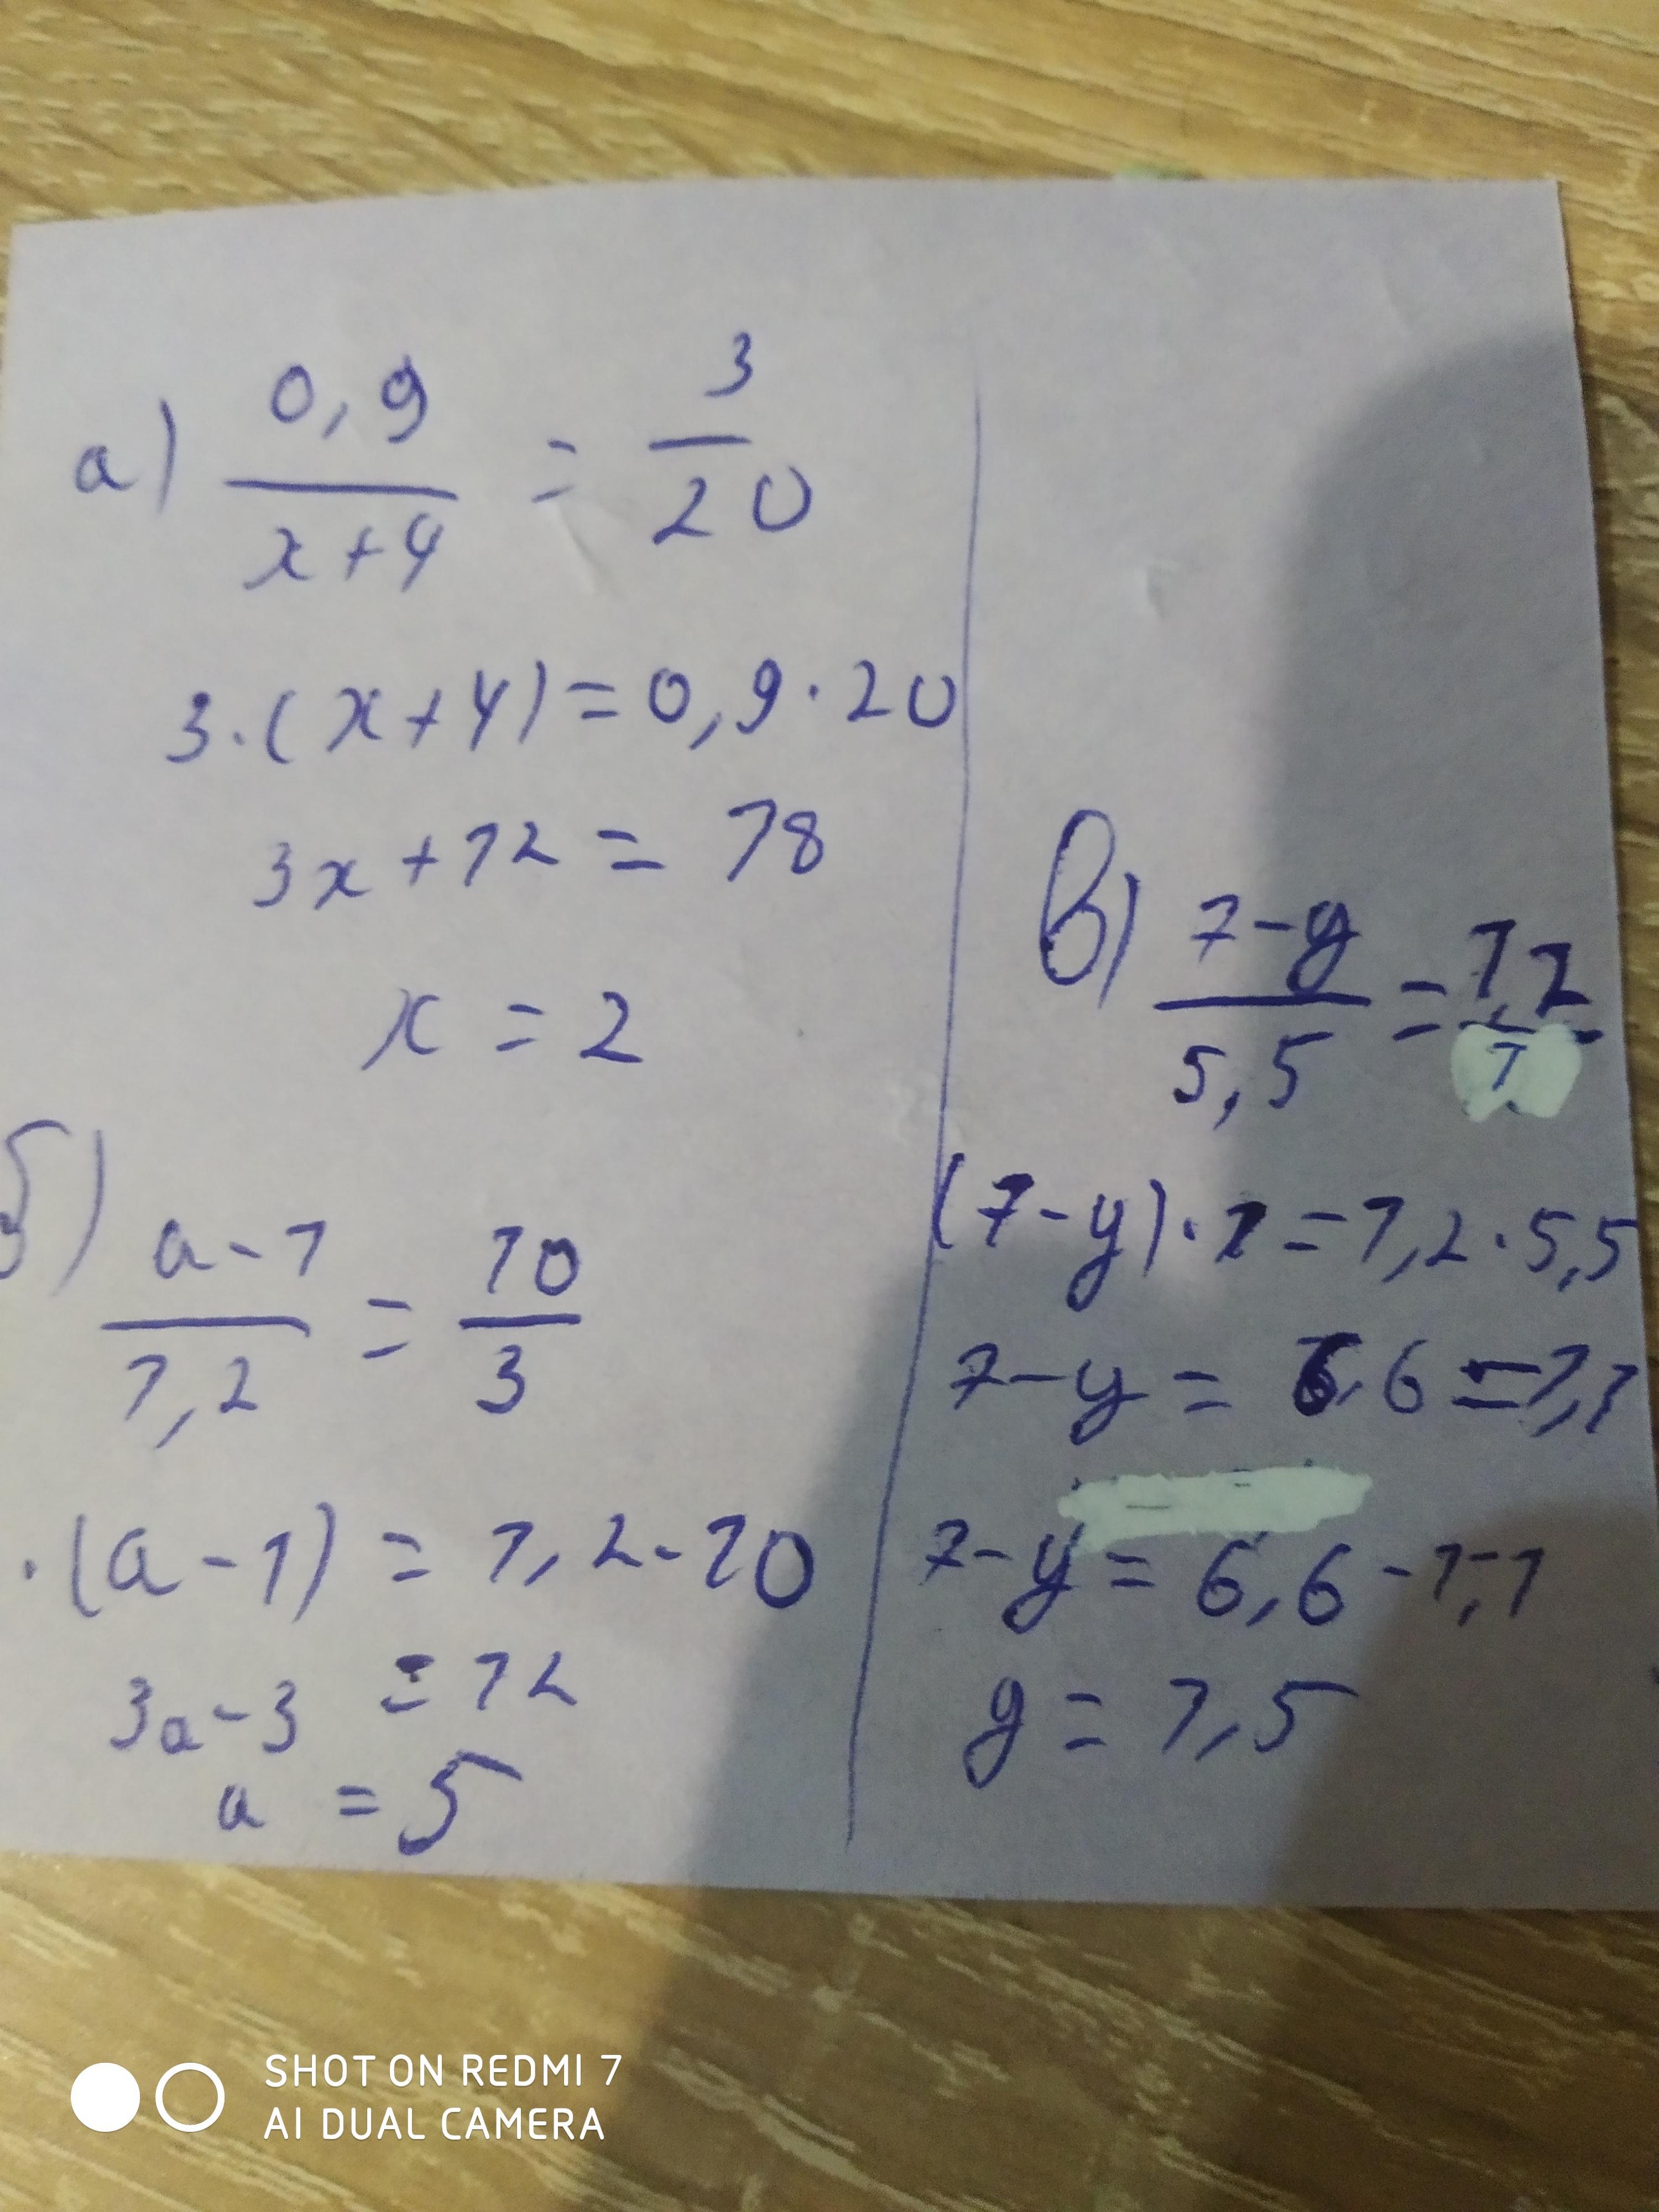 а) 0,9 / x+4 = 3 / 20
3·(x+4)=0,9·20
3x+12 = 18
x = 2
б) a-1 / 1,2 = 10 / 3
·(a-1) = 1,2·10
3a-3 = 12
a = 5
в) 7-y / 5,5 = 1,2 / 1
(7-y)·1=1,2·5,5
7-y = 6,6 =1,1
7-y = 6,6 -1,1
y = 1,5
SHOT ON REDMI 7
AI DUAL CAMERA